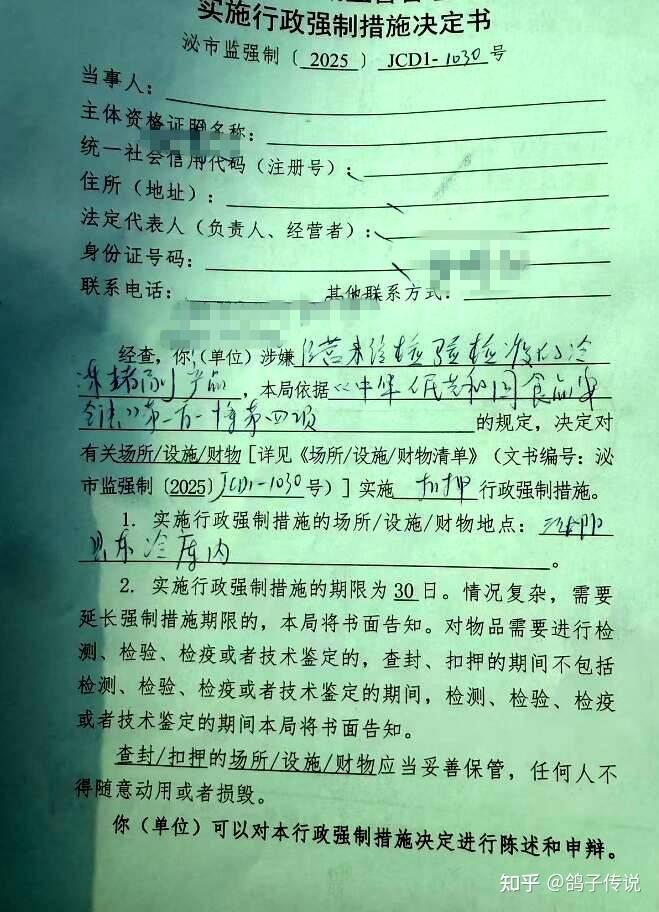 实施行政强制措施决定书
泌市监强制〔2025〕JCD1-1030号
当事人：
主体资格证照名称：
统一社会信用代码（注册号）：
住所（地址）：
法定代表人（负责人、经营者）：
身份证号码：
联系电话： 其他联系方式：
经查，你（单位）涉嫌经营未经检验检疫的冷
冻猪副产品，本局依据《中华人民共和国食品安
全法》第一百一十条第四项的规定，决定对
有关场所/设施/财物［详见《场所/设施/财物清单》（文书编号：泌
市监强制〔2025〕JCD1-1030号）］实施 扣押 行政强制措施。
1. 实施行政强制措施的场所/设施/财物地点：
冷库内。
2. 实施行政强制措施的期限为30日。情况复杂，需要
延长强制措施期限的，本局将书面告知。对物品需要进行检
测、检验、检疫或者技术鉴定的，查封、扣押的期间不包括
检测、检验、检疫或者技术鉴定的期间，检测、检验、检疫
或者技术鉴定的期间本局将书面告知。
查封/扣押的场所/设施/财物应当妥善保管，任何人不
得随意动用或者损毁。
你（单位）可以对本行政强制措施决定进行陈述和申辩。
知乎 @鸽子传说